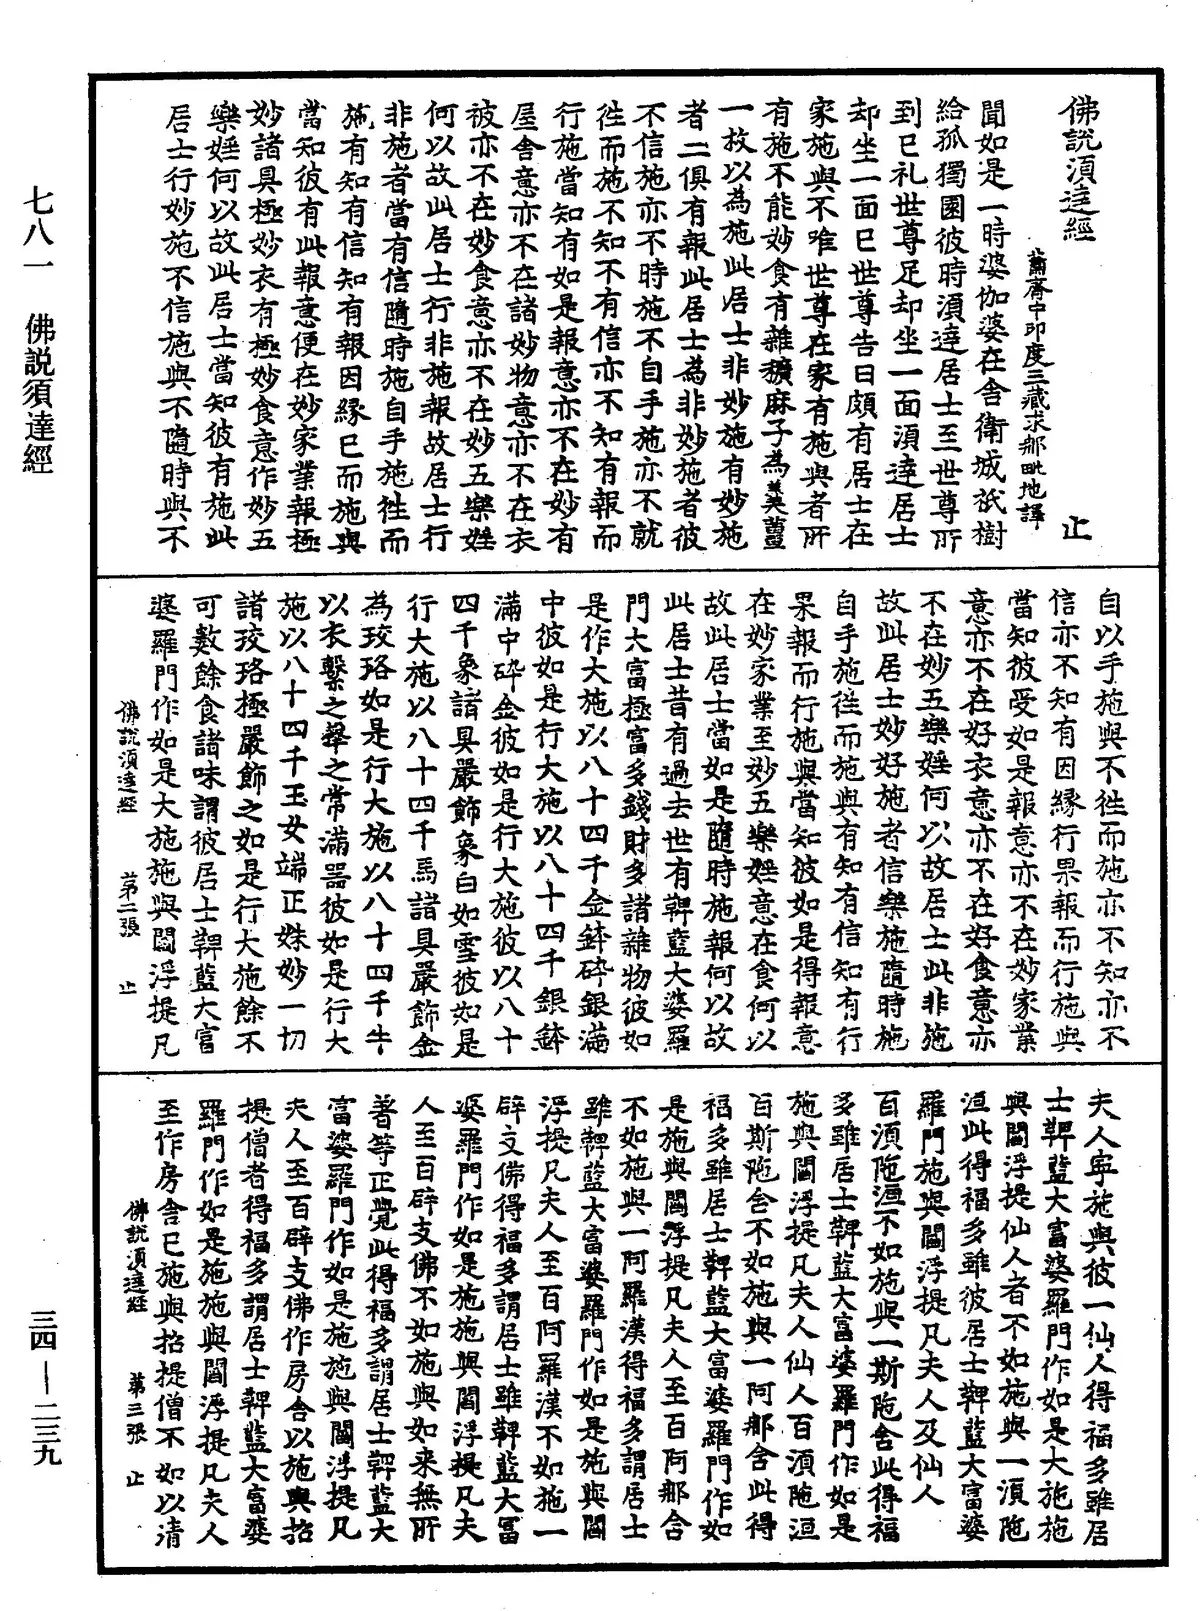 佛説湏達經 止
蕭齊中印度三藏求那毗地譯
聞如是一時婆伽婆在舍衛城祇樹
給孤獨園彼時湏達居士至世尊所
到已礼世尊足却坐一面湏達居士
却坐一面已世尊告曰頗有居士在
家施與不唯世尊在家有施與者所
有施不能妙食有雜穬麻子為羹薑
一枚以為施此居士非妙施有妙施
者二俱有報此居士為非妙施者彼
不信施亦不時施不自手施亦不就
往而施不知不有信亦不知有報而
行施當知有如是報意亦不在妙有
屋舍意亦不在諸妙物意亦不在衣
被亦不在妙食意亦不在妙五樂婬
何以故此居士行非施報故居士行
非施者當有信隨時施自手施往而
施有知有信知有報因緣已而施與
當知彼有此報意便在妙家業報極
妙諸具極妙衣有極妙食意作妙五
樂婬何以故此居士當知彼有施此
居士行妙施不信施與不隨時與不
自以手施與不往而施亦不知亦不
信亦不知有因緣行果報而行施與
當知彼受如是報意亦不在妙家業
意亦不在好衣意亦不在好食意亦
不在妙五樂婬何以故居士此非施
故此居士妙好施者信樂施隨時施
自手施往而施與有知有信知有行
果報而行施與當知彼如是得報意
在妙家業至妙五樂婬意在食何以
故此居士當如是隨時施報何以故
此居士昔有過去世有鞞藍大婆羅
門大富極富多錢財多諸雜物彼如
是作大施以八十四千金鉢碎銀滿
中彼如是行大施以八十四千銀鉢
滿中碎金彼如是行大施彼以八十
四千象諸具嚴飾象白如雪彼如是
行大施以八十四千馬諸具嚴飾金
為珓珞如是行大施以八十四千牛
以衣繫之犎之常滿器彼如是行大
施以八十四千玉女端正姝妙一切
諸珓珞極嚴飾之如是行大施餘不
可數餘食諸味謂彼居士鞞藍大富
婆羅門作如是大施施與閻浮提凡
佛説湏達經 苐二張 止
夫人寧施與彼一仙人得福多雖居
士鞞藍大富婆羅門作如是大施施
與閻浮提仙人者不如施與一湏陁
洹此得福多雖彼居士鞞藍大富婆
羅門施與閻浮提凡夫人及仙人
百湏陁洹不如施與一斯陁含此得福
多雖居士鞞藍大富婆羅門作如是
施與閻浮提凡夫人仙人百湏陁洹
百斯陁含不如施與一阿那含此得
福多雖居士鞞藍大富婆羅門作如
是施與閻浮提凡夫人至百阿那含
不如施與一阿羅漢得福多謂居士
雖鞞藍大富婆羅門作如是施與閻
浮提凡夫人至百阿羅漢不如施一
辟支佛得福多謂居士雖鞞藍大富
婆羅門作如是施施與閻浮提凡夫
人至百辟支佛不如施與如來無所
著等正覺此得福多謂居士鞞藍大
富婆羅門作如是施施與閻浮提凡
夫人至百辟支佛作房舍以施與招
提僧者得福多謂居士鞞藍大富婆
羅門作如是施施與閻浮提凡夫人
至作房舍已施與招提僧不如以清
佛説湏達經 苐三張 止
七八一 佛説須達經
三四—二三九